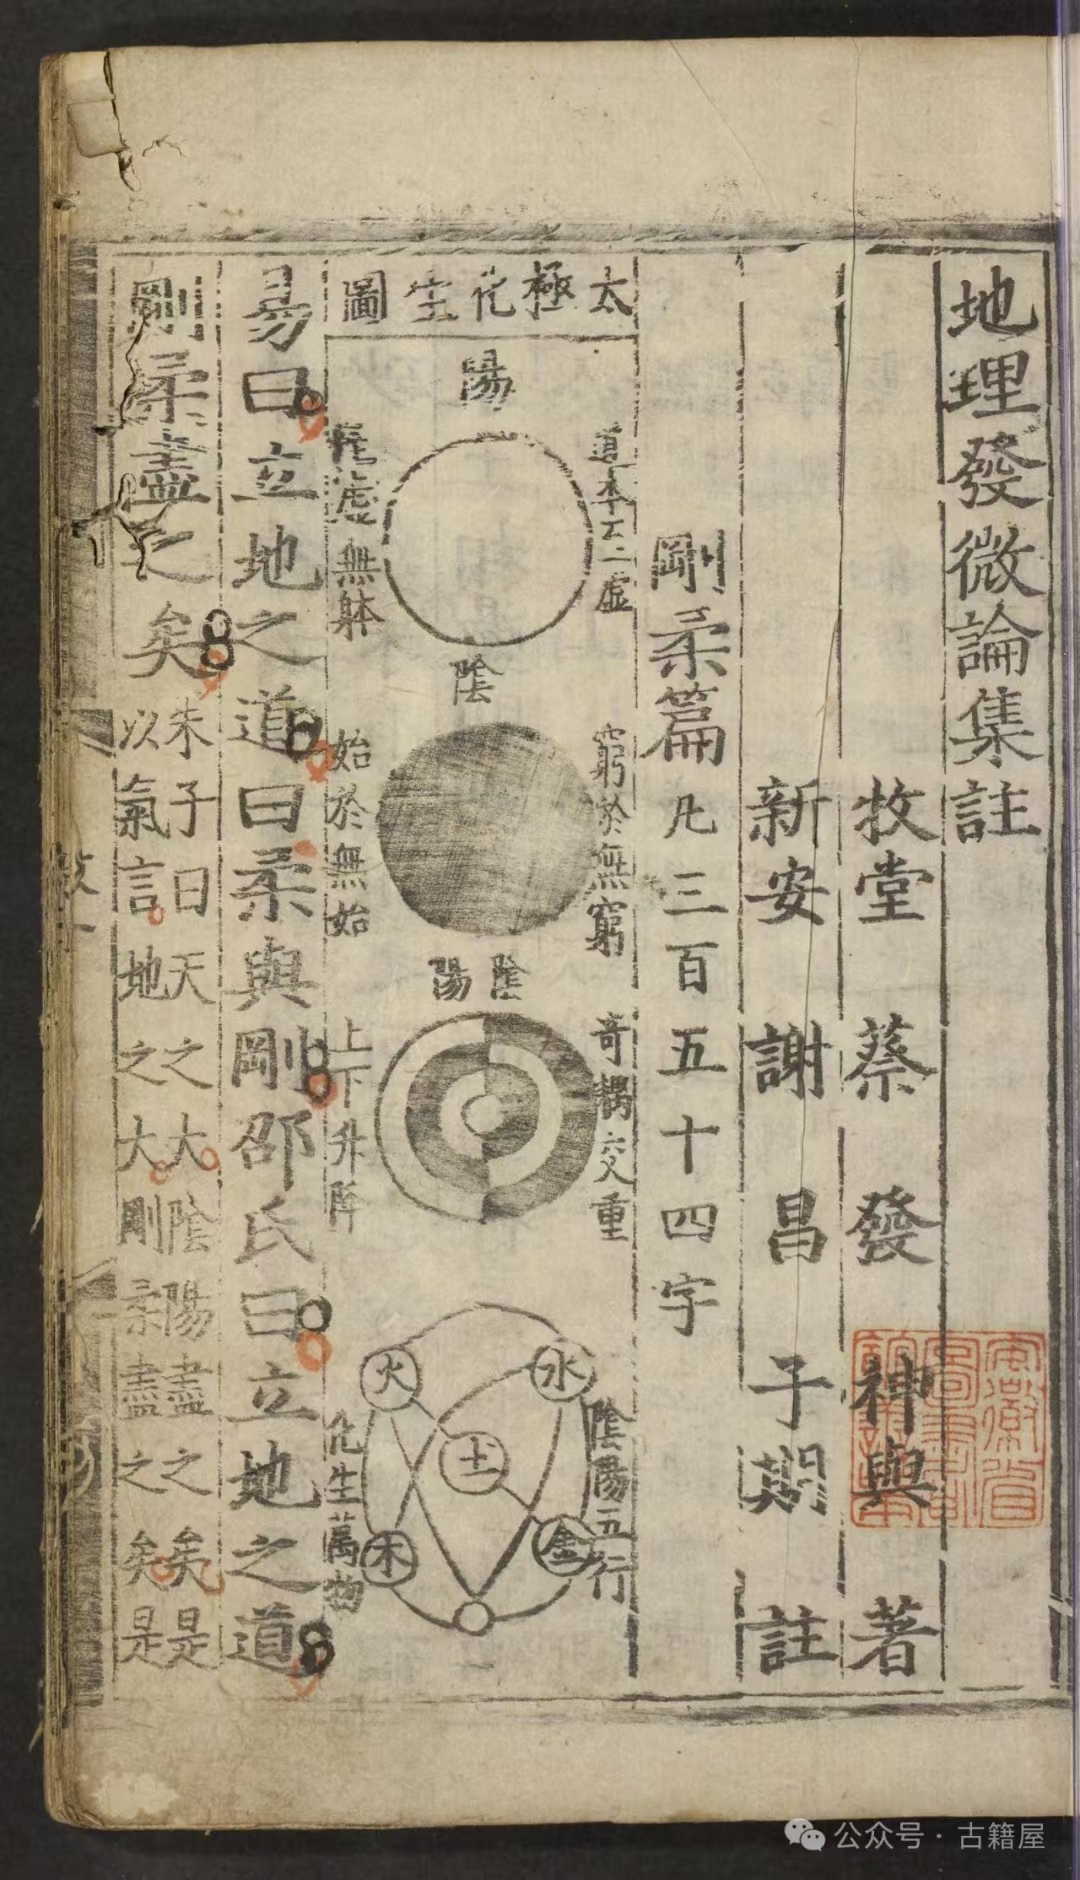 地理發微論集註
牧堂蔡發神與著
新安謝昌子期註
剛柔篇凡三百五十四字
太極化生圖
道本亡二虛
陽
虛無躰
陰
窮於無窮
始於無始
陰陽
奇耦交重
上下升降
陰陽五行
水
火
土
金
木
化生萬物
易曰立地之道曰柔與剛邵氏曰立地之道
剛柔盡之矣
朱子曰天之大陰陽盡之矣是
以氣言地之大剛柔盡之矣是
公众号·古籍屋